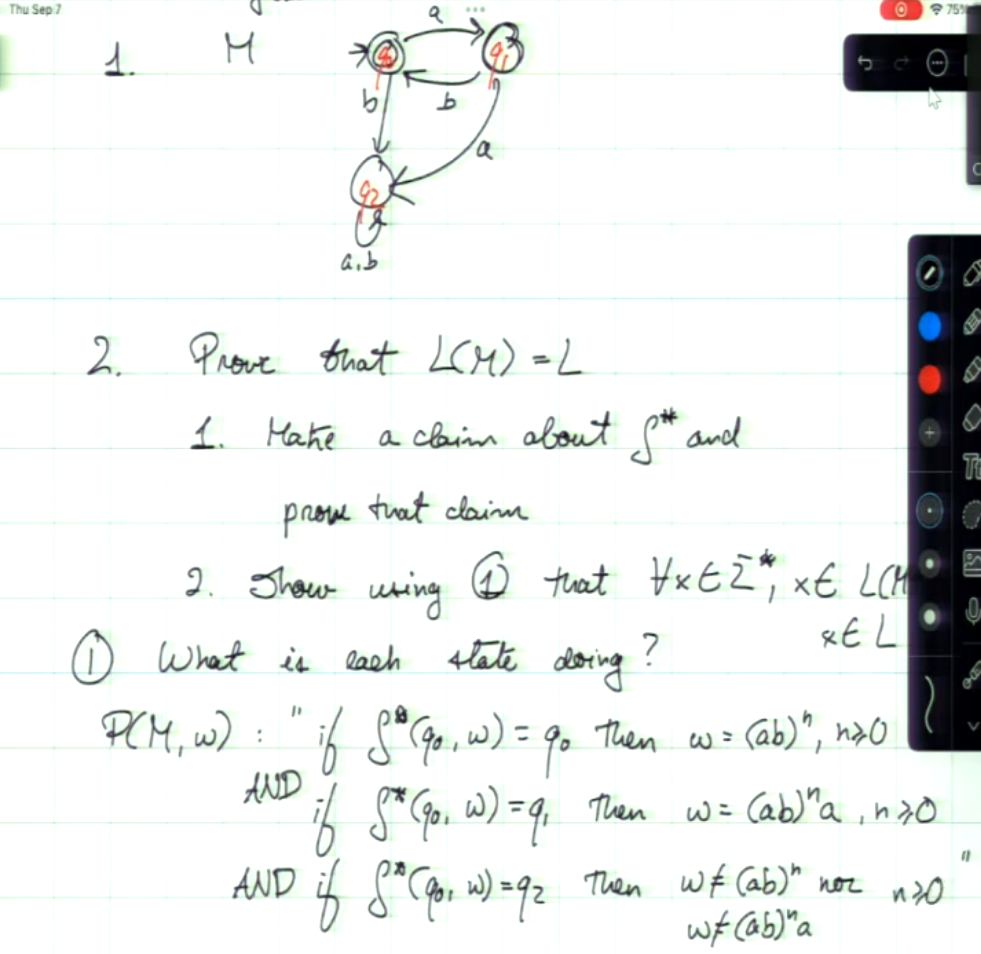 Thu Sep 7
75%
1. M
a
q0
q1
b
b
a
q2
a,b
2. Prove that L(M) = L
1. Make a claim about δ* and
prove that claim
2. Show using ① that ∀x∈Σ*, x∈ L(M
x∈ L
① What is each state doing?
P(M, w) : "if δ*(q0, w) = q0 then w = (ab)ⁿ, n≥0
AND if δ*(q0, w) = q1 then w = (ab)ⁿa, n≥0
AND if δ*(q0, w) = q2 then w≠(ab)ⁿ nor n≥0"
w≠(ab)ⁿa